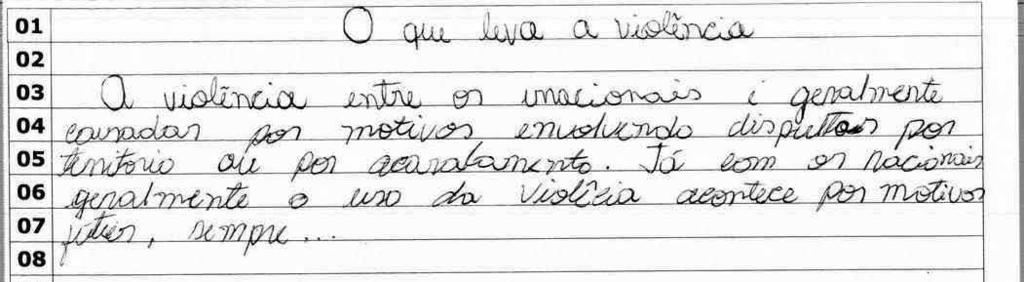 01 O que leva a violência
02
03 A violência entre os irracionais é geralmente
04 causadas por motivos envolvendo disputas por
05 território ou por acasalamento. Já com os racionais
06 geralmente o uso da violêcia acontece por motivos
07 fúteis, sempre...
08